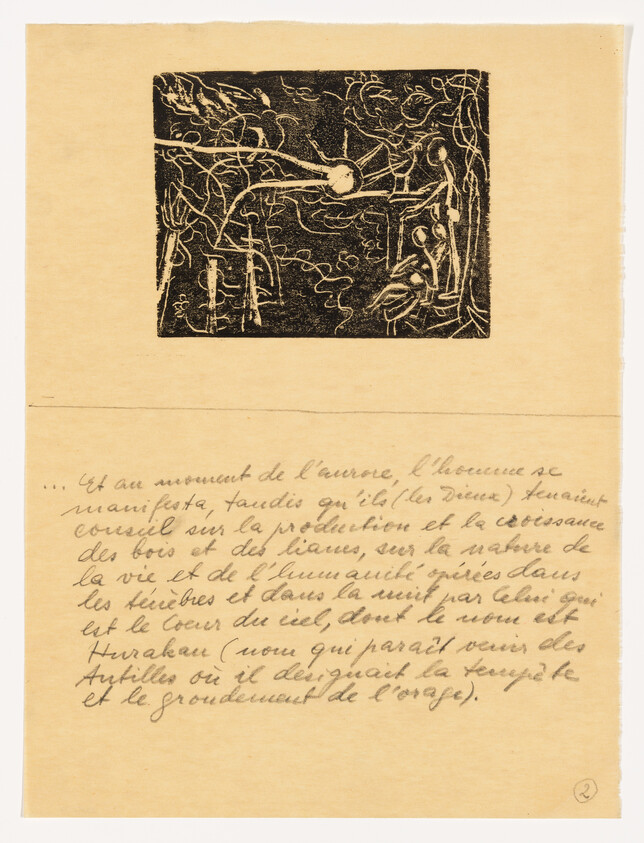 ... Et au moment de l'aurore, l'homme se
manifesta, tandis qu'ils (les Dieux) tenaient
conseil sur la production et la croissance
des bois et des lianes, sur la nature de
la vie et de l'humanité opérées dans
les ténèbres et dans la nuit par Celui qui
est le Coeur du ciel, dont le nom est
Hurakan (nom qui paraît venir des
Antilles où il désignait la tempête
et le grondement de l'orage).
2